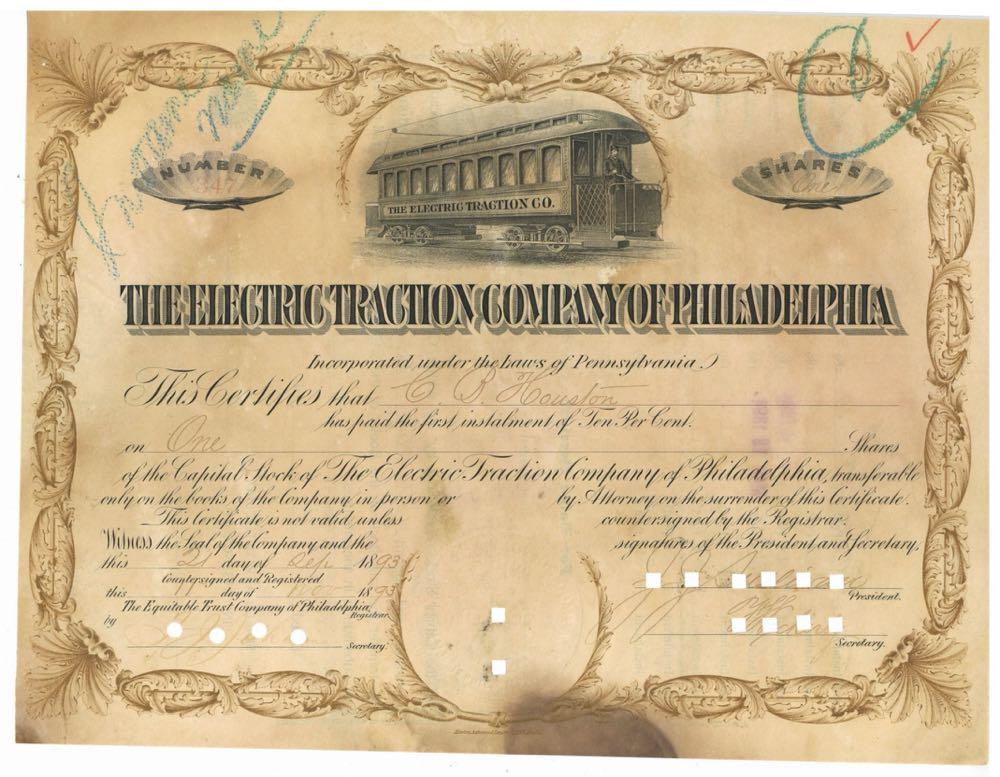 NUMBER
347
SHARES
One
THE ELECTRIC TRACTION CO.
THE ELECTRIC TRACTION COMPANY OF PHILADELPHIA
Incorporated under the Laws of Pennsylvania
This Certifies that C. B. Houston
has paid the first instalment of Ten Per Cent.
on One Shares
of the Capital Stock of The Electric Traction Company of Philadelphia, transferable
only on the books of the Company in person or by Attorney on the surrender of this Certificate.
This Certificate is not valid unless countersigned by the Registrar.
Witness the Seal of the Company and the signatures of the President and Secretary,
this 21 day of Sep 1893
Countersigned and Registered
this day of 1893
The Equitable Trust Company of Philadelphia, Registrar.
by
Secretary.
President.
Secretary.